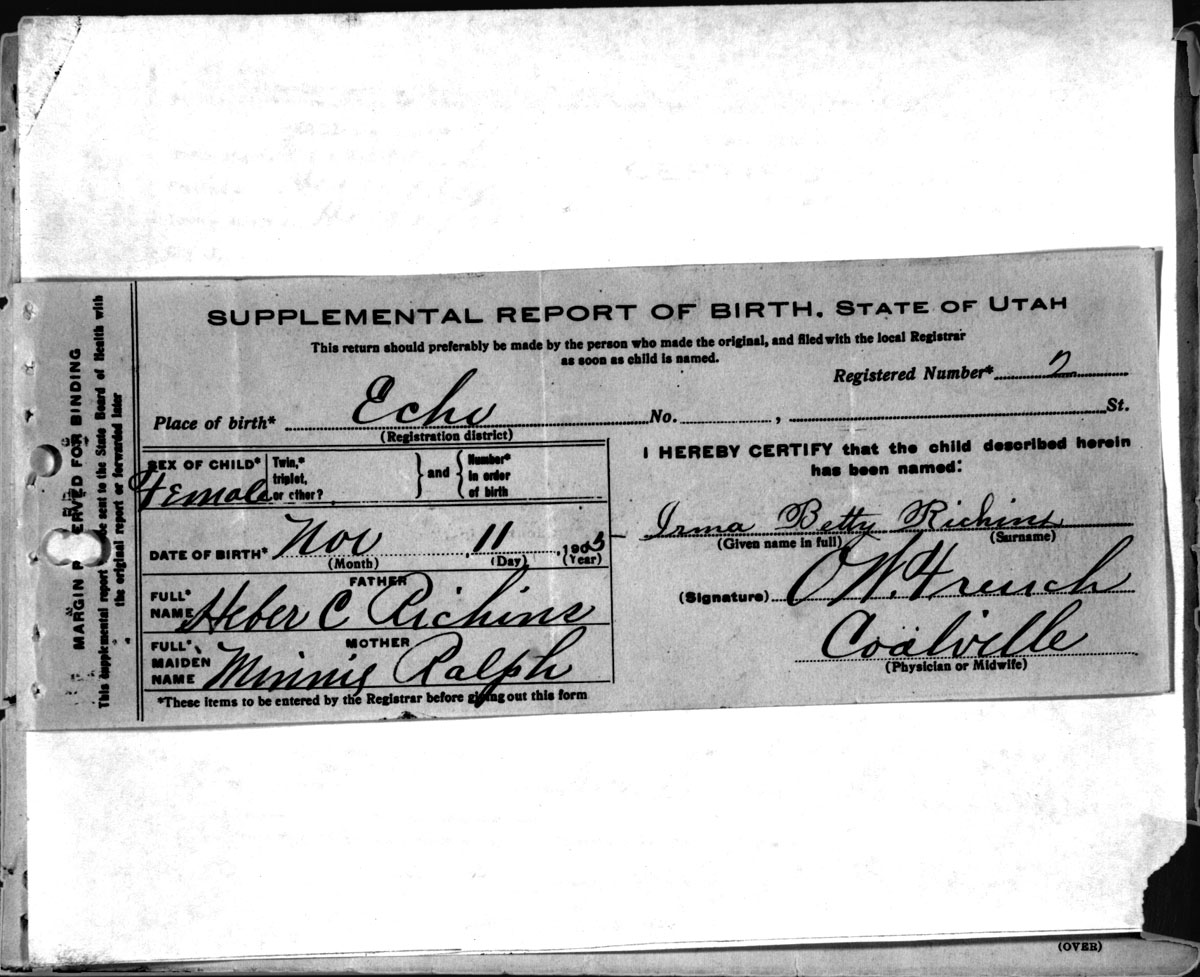 SUPPLEMENTAL REPORT OF BIRTH. STATE OF UTAH
This return should preferably be made by the person who made the original, and filed with the local Registrar
as soon as child is named.
Registered Number* 2
Place of birth* Echo No. , St.
(Registration district)
SEX OF CHILD* Female
Twin,* triplet, or other?
and
Number* in order of birth
DATE OF BIRTH* Nov , 11 , 1903
(Month) (Day) (Year)
FATHER
FULL* NAME Heber C Richins
MOTHER
FULL* MAIDEN NAME Minnie Ralph
*These items to be entered by the Registrar before giving out this form
I HEREBY CERTIFY that the child described herein
has been named:
Irma Betty Richins
(Given name in full) (Surname)
(Signature) O W. French
Coalville
(Physician or Midwife)
MARGIN RESERVED FOR BINDING
This supplemental report be sent to the State Board of Health with
the original report or forwarded later
(OVER)